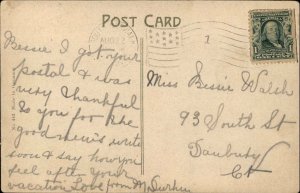 POST CARD
AUG 22
1
Bessie I got your
postal & was
very thankful
to you for the
good news write
soon & say how you
feel after your
vacation Love from M. Durkin
Miss Bessie Walsh
93 South St
Danbury
Ct